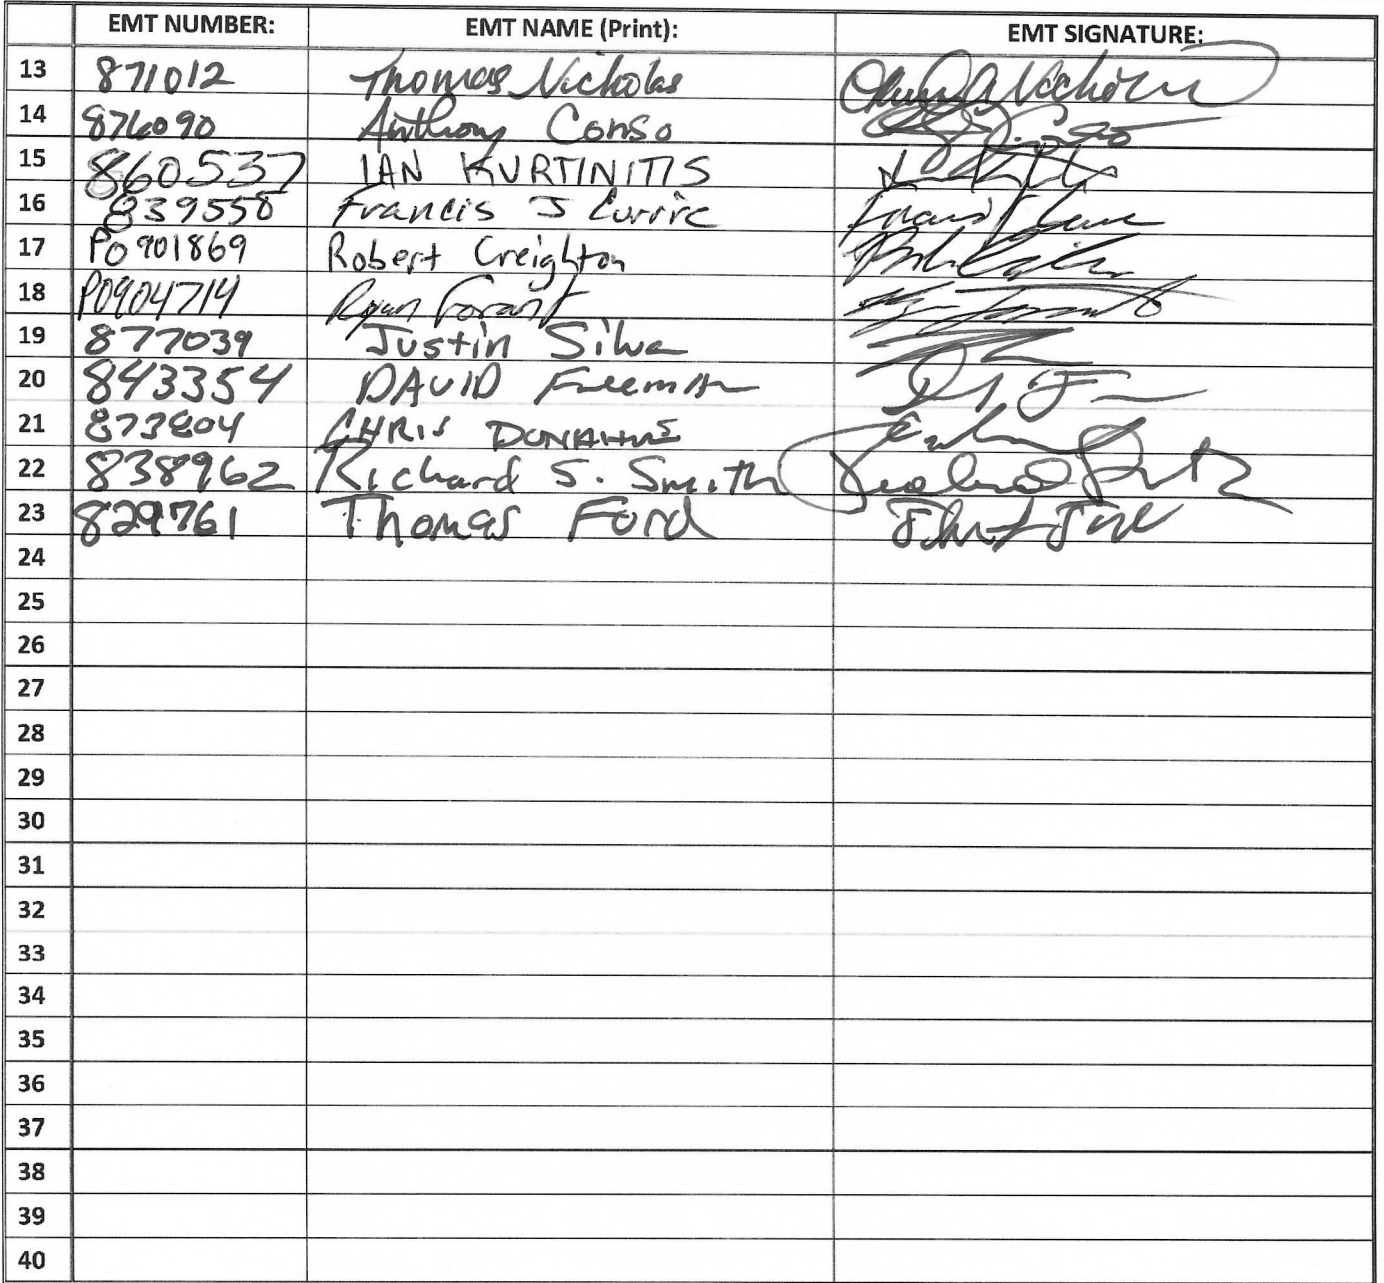 EMT NUMBER: EMT NAME (Print): EMT SIGNATURE:
13 871012 Thomas Nicholas
14 876090 Anthony Conso
15 860537 IAN KURTINITIS
16 839550 Francis J Currie
17 P0901869 Robert Creighton
18 P0904714 Ryan Forant
19 877039 Justin Silva
20 843354 DAVID Freeman
21 873804 CHRIS DONAHUE
22 838962 Richard S. Smith
23 829761 Thomas Ford
24
25
26
27
28
29
30
31
32
33
34
35
36
37
38
39
40